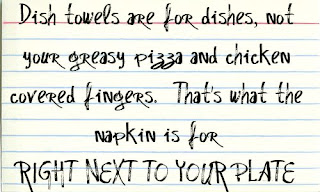 Dish towels are for dishes, not
your greasy pizza and chicken
covered fingers. That's what the
napkin is for
RIGHT NEXT TO YOUR PLATE